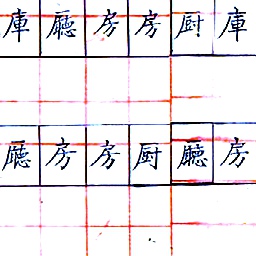 庫廳房房厨庫
廳房房厨廳房